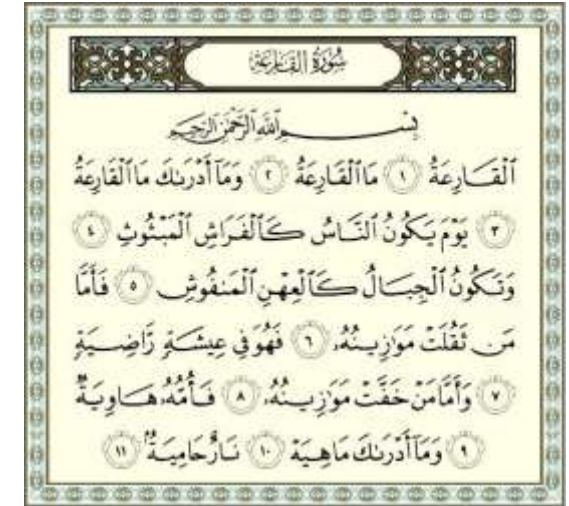 سُورَةُ القَارِعَةِ
بِسْمِ ٱللَّهِ ٱلرَّحْمَٰنِ ٱلرَّحِيمِ
ٱلْقَارِعَةُ ١ مَا ٱلْقَارِعَةُ ٢ وَمَآ أَدْرَىٰكَ مَا ٱلْقَارِعَةُ
٣ يَوْمَ يَكُونُ ٱلنَّاسُ كَٱلْفَرَاشِ ٱلْمَبْثُوثِ ٤
وَتَكُونُ ٱلْجِبَالُ كَٱلْعِهْنِ ٱلْمَنفُوشِ ٥ فَأَمَّا
مَن ثَقُلَتْ مَوَٰزِينُهُۥ ٦ فَهُوَ فِي عِيشَةٍ رَّاضِيَةٍ
٧ وَأَمَّا مَنْ خَفَّتْ مَوَٰزِينُهُۥ ٨ فَأُمُّهُۥ هَاوِيَةٌ
٩ وَمَآ أَدْرَىٰكَ مَا هِيَهْ ١٠ نَارٌ حَامِيَةٌۢ ١١